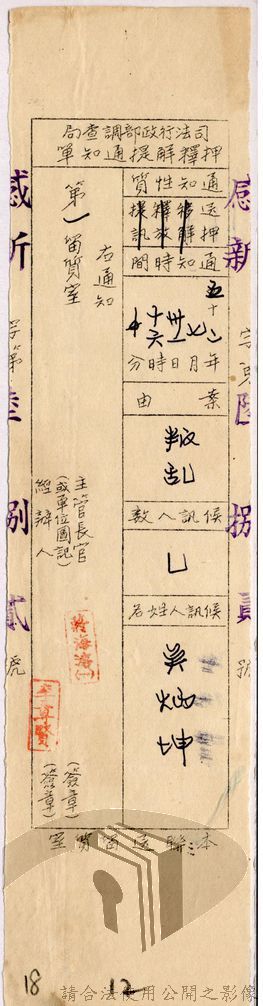 司法行政部調查局
押釋解提通知單
通知性質
送押 移解 釋放 提訊
通知時間
五十 年 七月 卅一日 十六時 十分
案由
叛亂
候訊人數
乚
候訊人姓名
吳炳坤
右通知
第一留質室
主管長官
(或單位圖記)
經辦人
(簽章)
(簽章)
本聯送留質室
感新
字第
陸
捌
貳
號
18
12
請合法使用公開之影像